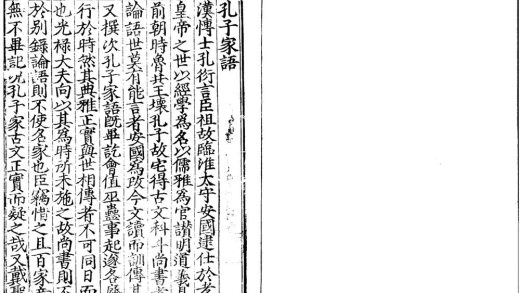 孔子家語
漢博士孔衍言臣祖故臨淮太守安國逮仕於孝
皇帝之世以經學為名以儒雅為官讃明道義見
前朝時魯共王壞孔子故宅得古文科斗尚書孝
論語世莫有能言者安國為改今文讀而訓傳其
又撰次孔子家語既畢訖會值巫蠱事起遂各廢
行於時然其典雅正實與世相傳者不可同日而
也光祿大夫向以其為時所未施之故尚書則不
於別錄論語則不使名家也臣竊惜之且百家章
無不畢記況孔子家古文正實而疑之哉又戴聖